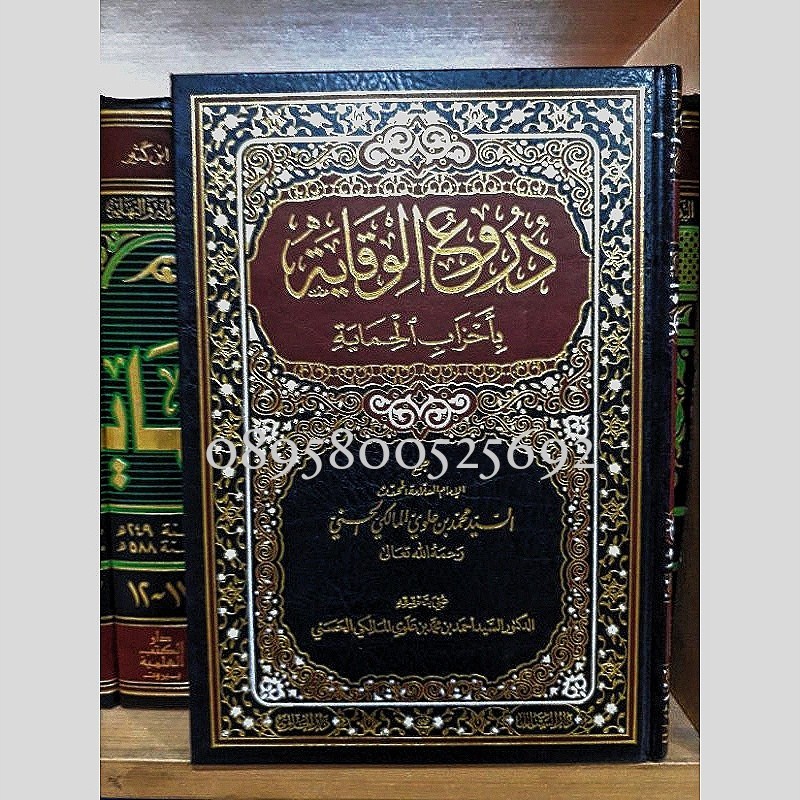 دُرُوعُ الْوِقَايَة
بِأَحْزَابِ الْحِمَايَة
0895800525692
جمع
الإمام العلامة المحدث
السيد محمد بن علوي المالكي الحسني
رحمه الله تعالى
الدكتور السيد أحمد بن محمد بن علوي المالكي الحسني
ابن كثير
سنة ٢٤٩ هـ
سنة ٥٨٨ هـ
١١-١٢
دار
الكتب
العلمية
بيروت